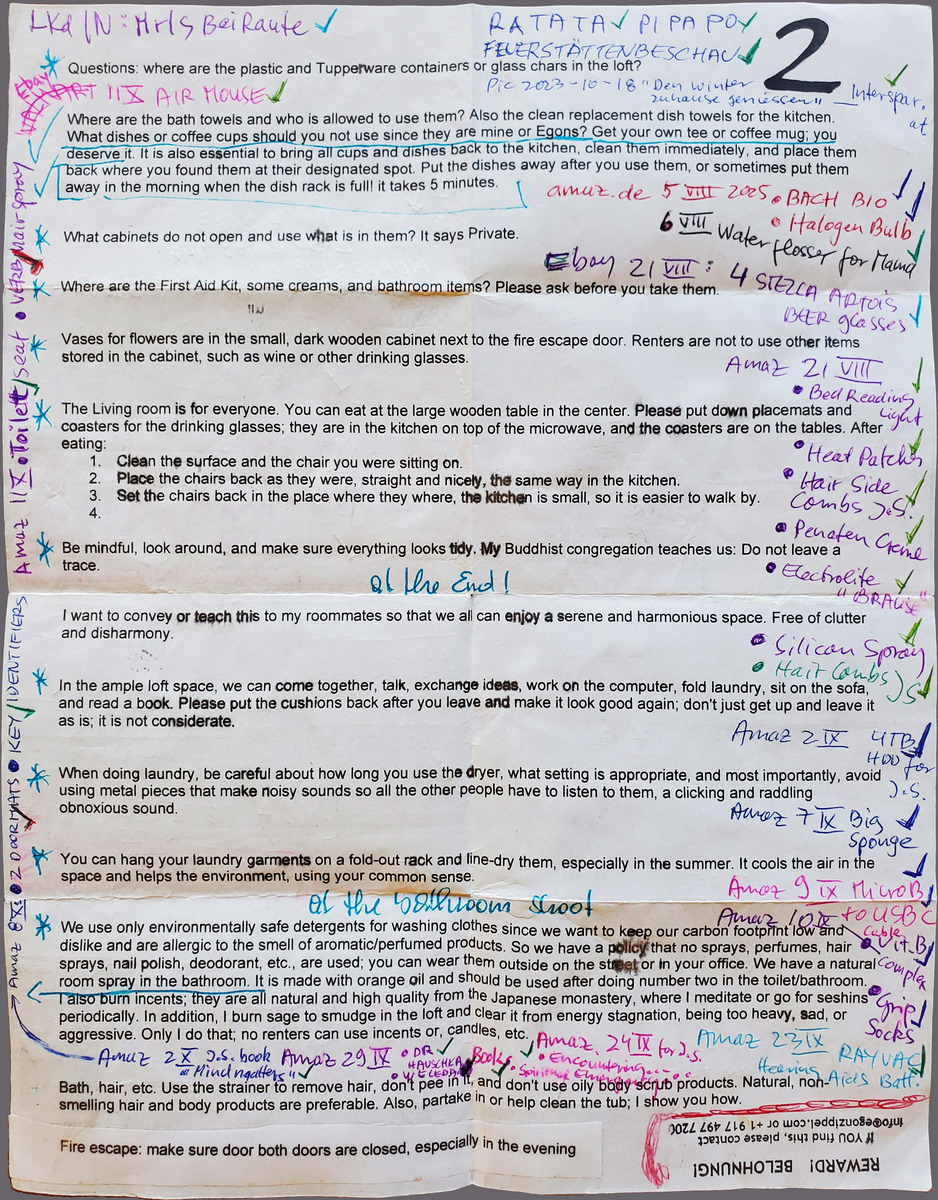 LKd / N: Mrls Bei Raute ✓
RATATA ✓ PIPAPO ✓
FEUERSTÄTTENBESCHAU ✓
2
Questions: where are the plastic and Tupperware containers or glass chars in the loft?
Pic 2023-10-18 "Den Winter
zuhause geniessen" _ Interspar.
at
Ebay
11 IX AIR MOUSE ✓
Where are the bath towels and who is allowed to use them? Also the clean replacement dish towels for the kitchen.
What dishes or coffee cups should you not use since they are mine or Egons? Get your own tee or coffee mug; you
deserve it. It is also essential to bring all cups and dishes back to the kitchen, clean them immediately, and place them
back where you found them at their designated spot. Put the dishes away after you use them, or sometimes put them
away in the morning when the dish rack is full! it takes 5 minutes.
amaz.de 5 VIII 2025 • BACH BIO
• Halogen Bulb
6 VIII Water flosser for Mama
What cabinets do not open and use what is in them? It says Private.
Ebay 21 VIII: 4 STELLA ARTOIS
BEER glasses
Where are the First Aid Kit, some creams, and bathroom items? Please ask before you take them.
Vases for flowers are in the small, dark wooden cabinet next to the fire escape door. Renters are not to use other items
stored in the cabinet, such as wine or other drinking glasses.
Amaz 21 VIII
• Bed Reading
Light
The Living room is for everyone. You can eat at the large wooden table in the center. Please put down placemats and
coasters for the drinking glasses; they are in the kitchen on top of the microwave, and the coasters are on the tables. After
eating:
1. Clean the surface and the chair you were sitting on.
2. Place the chairs back as they were, straight and nicely, the same way in the kitchen.
3. Set the chairs back in the place where they where, the kitchen is small, so it is easier to walk by.
4.
• Heat Patches
• Hair Side
Combs J.S.
• Penaten Creme
• Electrolite
"BRAUSE"
Be mindful, look around, and make sure everything looks tidy. My Buddhist congregation teaches us: Do not leave a
trace.
at the End!
I want to convey or teach this to my roommates so that we all can enjoy a serene and harmonious space. Free of clutter
and disharmony.
• Silicon Spray
• Hair Combs J.S
In the ample loft space, we can come together, talk, exchange ideas, work on the computer, fold laundry, sit on the sofa,
and read a book. Please put the cushions back after you leave and make it look good again; don't just get up and leave it
as is; it is not considerate.
Amaz 2 IX 4TB
HDD for
J.S.
When doing laundry, be careful about how long you use the dryer, what setting is appropriate, and most importantly, avoid
using metal pieces that make noisy sounds so all the other people have to listen to them, a clicking and raddling
obnoxious sound.
Amaz 7 IX Big
Sponge
You can hang your laundry garments on a fold-out rack and line-dry them, especially in the summer. It cools the air in the
space and helps the environment, using your common sense.
Amaz 9 IX MicroB
to USB C
Cable
at the bathroom shoot
Amaz 10 IX
• Vit. B
Complex
• Grip
Socks
We use only environmentally safe detergents for washing clothes since we want to keep our carbon footprint low and
dislike and are allergic to the smell of aromatic/perfumed products. So we have a policy that no sprays, perfumes, hair
sprays, nail polish, deodorant, etc., are used; you can wear them outside on the street or in your office. We have a natural
room spray in the bathroom. It is made with orange oil and should be used after doing number two in the toilet/bathroom.
I also burn incents; they are all natural and high quality from the Japanese monastery, where I meditate or go for seshins
periodically. In addition, I burn sage to smudge in the loft and clear it from energy stagnation, being too heavy, sad, or
aggressive. Only I do that; no renters can use incents or, candles, etc.
Amaz 2 X J.S. book
"Mindmatters" ✓
Amaz 29 IX • DR HAUSCHKA
• WELEDA
Books ✓
Amaz 24 IX for J.S.
• Encountering...
• Spiritual Emergency...
Amaz 23 IX RAYVAC
Hearing Aids Batt.
Bath, hair, etc. Use the strainer to remove hair, don't pee in it, and don't use oily body scrub products. Natural, non-
smelling hair and body products are preferable. Also, partake in or help clean the tub; I show you how.
Fire escape: make sure door both doors are closed, especially in the evening
REWARD! BELOHNUNG!
If YOU find this, please contact
info@egonzippel.com or +1 917 497 7200
Amaz 11 X • Toilett/Seat • VERB/Hairspray
Amaz 8 X: • 2 DOORMATS • KEY/IDENTIFIERS